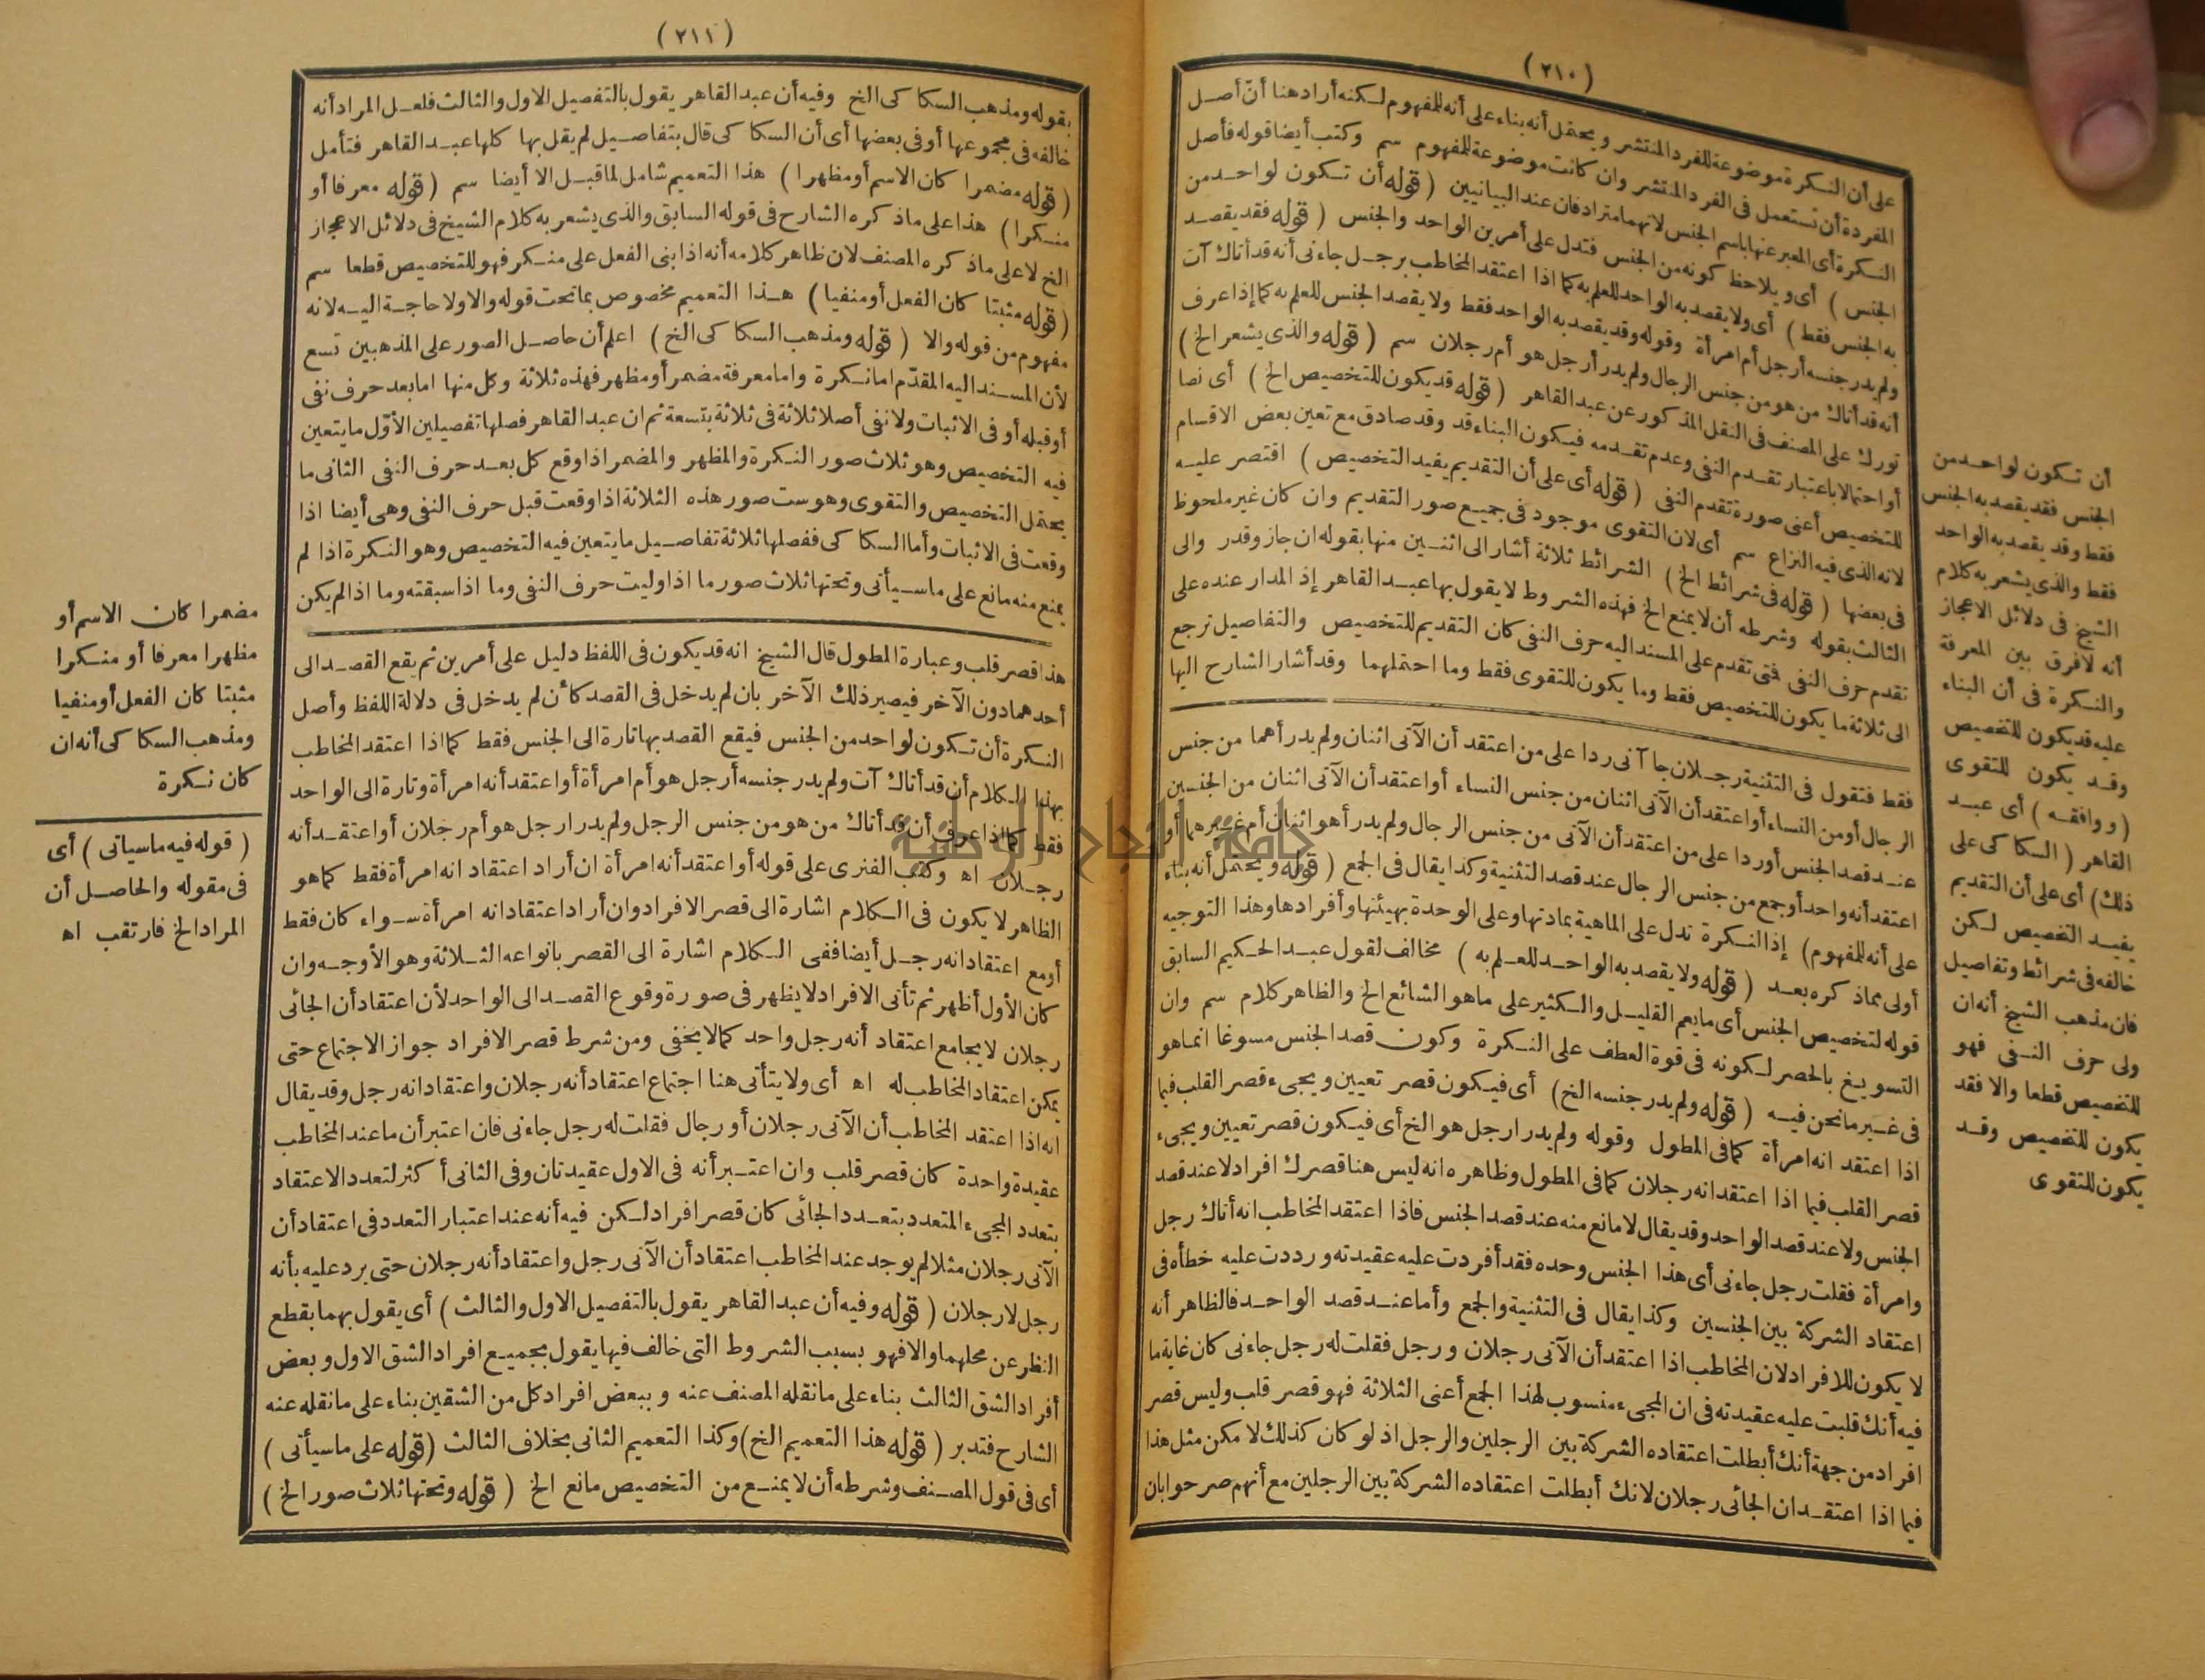 (٢١٠)
على أن النكرة موضوعة للفرد المنتشر ويحتمل أنه بناء على أنه للمفهوم لكنه أراد هنا أنّ أصل
المفردة أن تستعمل فى الفرد المنتشر وان كانت موضوعة للمفهوم سم وكتب أيضا قوله فأصل
النكرة أى المعبر عنها باسم الجنس لانهما مترادفان عند البيانيين (قوله أن تكون لواحد من
الجنس) أى ويلاحظ كونه من الجنس فتدل على أمرين الواحد والجنس (قوله فقد يقصد
به الجنس فقط) أى ولا يقصد به الواحد للعلم به كما اذا اعتقد المخاطب برجل جاءنى أنه قد أتاك آت
ولم يدر جنسه أرجل أم امرأة وقوله وقد يقصد به الواحد فقط ولا يقصد الجنس للعلم به كما إذا عرف
أنه قد أتاك من هو من جنس الرجال ولم يدر أرجل هو أم رجلان سم (قوله والذى يشعر الخ)
تورك على المصنف فى النقل المذكور عن عبد القاهر (قوله قد يكون للتخصيص الخ) أى نصا
أو احتمالا باعتبار تقدم النفى وعدم تقدمه فيكون البناء قد وقد صادق مع تعين بعض الاقسام
للتخصيص أعنى صورة تقدم النفى (قوله أى على أن التقديم يفيد التخصيص) اقتصر عليه
لانه الذى فيه النزاع سم أى لان التقوى موجود فى جميع صور التقديم وان كان غير ملحوظ
فى بعضها (قوله فى شرائط الخ) الشرائط ثلاثة أشار الى اثنين منها بقوله ان جاز وقدر والى
الثالث بقوله وشرطه أن لا يمنع الخ فهذه الشروط لا يقول بها عبد القاهر إذ المدار عنده على
تقدم حرف النفى فمتى تقدم على المسند اليه حرف النفى كان التقديم للتخصيص والتفاصيل ترجع
الى ثلاثة ما يكون للتخصيص فقط وما يكون للتقوى فقط وما احتملهما وقد أشار الشارح اليها
فقط فتقول فى التثنية رجلان جا آنى ردا على من اعتقد أن الآتى اثنان ولم يدر أهما من جنس
الرجال أو من النساء أو اعتقد أن الآتى اثنان من جنس النساء أو اعتقد أن الآتى اثنان من الجنسين
عند قصد الجنس أو ردا على من اعتقد أن الآتى من جنس الرجال ولم يدر أهو اثنان أم غيرهما أو
اعتقد أنه واحد أو جمع من جنس الرجال عند قصد التثنية وكذا يقال فى الجمع (قوله ويحتمل أنه بناء
على أنه للمفهوم) إذ النكرة تدل على الماهية بمادتها وعلى الوحدة بهيئتها وأفرادها وهذا التوجيه
أولى مما ذكره بعد (قوله ولا يقصد به الواحد للعلم به) مخالف لقول عبد الحكيم السابق
قوله لتخصيص الجنس أى ما يعم القليل والكثير على ما هو الشائع الخ والظاهر كلام سم وان
التسويغ بالحصر لكونه فى قوة العطف على النكرة وكون قصد الجنس مسوغا انما هو
فى غير ما نحن فيه (قوله ولم يدر جنسه الخ) أى فيكون قصر تعيين ويجىء قصر القلب فيما
اذا اعتقد انه امرأة كما فى المطول وقوله ولم يدر ارجل هو الخ أى فيكون قصر تعيين ويجىء
قصر القلب فيما اذا اعتقد انه رجلان كما فى المطول وظاهره انه ليس هنا قصرك افراد لا عند قصد
الجنس ولا عند قصد الواحد وقد يقال لا مانع منه عند قصد الجنس فاذا اعتقد المخاطب انه أتاك رجل
وامرأة فقلت رجل جاءنى أى هذا الجنس وحده فقد أفردت عليه عقيدته ورددت عليه خطأه فى
اعتقاد الشركة بين الجنسين وكذا يقال فى التثنية والجمع وأما عند قصد الواحد فالظاهر أنه
لا يكون للافراد لان المخاطب اذا اعتقد أن الآتى رجلان ورجل فقلت له رجل جاءنى كان غاية ما
فيه أنك قلبت عليه عقيدته فى ان المجىء منسوب لهذا الجمع أعنى الثلاثة فهو قصر قلب وليس قصر
افراد من جهة أنك أبطلت اعتقاده الشركة بين الرجلين والرجل اذ لو كان كذلك لا مكن مثل هذا
فيما اذا اعتقد ان الجائى رجلان لانك أبطلت اعتقاده الشركة بين الرجلين مع أنهم صرحوا بان
أن تكون لواحد من
الجنس فقد يقصد به الجنس
فقط وقد يقصد به الواحد
فقط والذى يشعر به كلام
الشيخ فى دلائل الاعجاز
أنه لا فرق بين المعرفة
والنكرة فى أن البناء
عليه قد يكون للتخصيص
وقد يكون للتقوى
(ووافقه) أى عبد
القاهر (السكاكى على
ذلك) أى على أن التقديم
يفيد التخصيص لكن
خالفه فى شرائط وتفاصيل
فان مذهب الشيخ أنه ان
ولى حرف النفى فهو
للتخصيص قطعا والا فقد
يكون للتخصيص وقد
يكون للتقوى
(٢١١)
بقوله ومذهب السكاكى الخ وفيه أن عبد القاهر يقول بالتفصيل الاول والثالث فلعل المراد أنه
خالفه فى مجموعها أو فى بعضها أى أن السكاكى قال بتفاصيل لم يقل بها كلها عبد القاهر فتأمل
(قوله مضمرا كان الاسم أو مظهرا) هذا التعميم شامل لما قبل الا أيضا سم (قوله معرفا أو
منكرا) هذا على ما ذكره الشارح فى قوله السابق والذى يشعر به كلام الشيخ فى دلائل الاعجاز
الخ لا على ما ذكره المصنف لان ظاهر كلامه أنه اذا بنى الفعل على منكر فهو للتخصيص قطعا سم
(قوله مثبتا كان الفعل أو منفيا) هذا التعميم مخصوص بما تحت قوله والا ولا حاجة اليه لانه
مفهوم من قوله والا (قوله ومذهب السكاكى الخ) اعلم أن حاصل الصور على المذهبين تسع
لأن المسند اليه المقدّم اما نكرة واما معرفة مضمر أو مظهر فهذه ثلاثة وكل منها اما بعد حرف نفى
أو قبله أو فى الاثبات ولا نفى أصلا ثلاثة فى ثلاثة بتسعة ثم ان عبد القاهر فصلها تفصيلين الأوّل ما يتعين
فيه التخصيص وهو ثلاث صور النكرة والمظهر والمضمر اذا وقع كل بعد حرف النفى الثانى ما
يحتمل التخصيص والتقوى وهو ست صور هذه الثلاثة اذا وقعت قبل حرف النفى وهى أيضا اذا
وقعت فى الاثبات وأما السكاكى ففصلها ثلاثة تفاصيل ما يتعين فيه التخصيص وهو النكرة اذا لم
يمنع منه مانع على ما سيأتى وتحتها ثلاث صور ما اذا وليت حرف النفى وما اذا سبقته وما اذا لم يكن
هذا قصر قلب وعبارة المطول قال الشيخ انه قد يكون فى اللفظ دليل على أمرين ثم يقع القصد الى
أحدهما دون الآخر فيصير ذلك الآخر بان لم يدخل فى القصد كأن لم يدخل فى دلالة اللفظ وأصل
النكرة أن تكون لواحد من الجنس فيقع القصد بها تارة الى الجنس فقط كما اذا اعتقد المخاطب
بهذا الكلام أن قد أتاك آت ولم يدر جنسه أرجل هو أم امرأة أو اعتقد أنه امرأة وتارة الى الواحد
فقط كما اذا عرف أن قد أتاك من هو من جنس الرجل ولم يدر ارجل هو أم رجلان أو اعتقد أنه
رجلان اه وكتب الفنرى على قوله أو اعتقد أنه امرأة ان أراد اعتقاد انه امرأة فقط كما هو
الظاهر لا يكون فى الكلام اشارة الى قصر الافراد وان أراد اعتقاد انه امرأة سواء كان فقط
أو مع اعتقاد انه رجل أيضا ففى الكلام اشارة الى القصر بانواعه الثلاثة وهو الأوجه وان
كان الأول أظهر ثم تأتى الافراد لا يظهر فى صورة وقوع القصد الى الواحد لأن اعتقاد أن الجائى
رجلان لا يجامع اعتقاد أنه رجل واحد كما لا يخفى ومن شرط قصر الافراد جواز الاجتماع حتى
يمكن اعتقاد المخاطب له اه أى ولا يتأتى هنا اجتماع اعتقاد أنه رجلان واعتقاد انه رجل وقد يقال
انه اذا اعتقد المخاطب أن الآتى رجلان أو رجال فقلت له رجل جاءنى فان اعتبر أن ما عند المخاطب
عقيدة واحدة كان قصر قلب وان اعتبر أنه فى الاول عقيدتان وفى الثانى أكثر لتعدد الاعتقاد
بتعدد المجىء المتعدد بتعدد الجائى كان قصر افراد لكن فيه أنه عند اعتبار التعدد فى اعتقاد أن
الآتى رجلان مثلا لم يوجد عند المخاطب اعتقاد أن الآتى رجل واعتقاد أنه رجلان حتى يرد عليه بأنه
رجل لا رجلان (قوله وفيه أن عبد القاهر يقول بالتفصيل الاول والثالث) أى يقول بهما بقطع
النظر عن محلهما والا فهو بسبب الشروط التى خالف فيها يقول بجميع افراد الشق الاول وبعض
أفراد الشق الثالث بناء على ما نقله المصنف عنه وببعض افراد كل من الشقين بناء على ما نقله عنه
الشارح فتدبر (قوله هذا التعميم الخ) وكذا التعميم الثانى بخلاف الثالث (قوله على ما سيأتى)
أى فى قول المصنف وشرطه أن لا يمنع من التخصيص مانع الخ (قوله وتحتها ثلاث صور الخ)
مضمرا كان الاسم أو
مظهرا معرفا أو منكرا
مثبتا كان الفعل أو منفيا
ومذهب السكاكى أنه ان
كان نكرة
(قوله فيه ما سياتى) أى
فى مقوله والحاصل أن
المراد الخ فارتقب اه
جامعة النجاح الوطنية